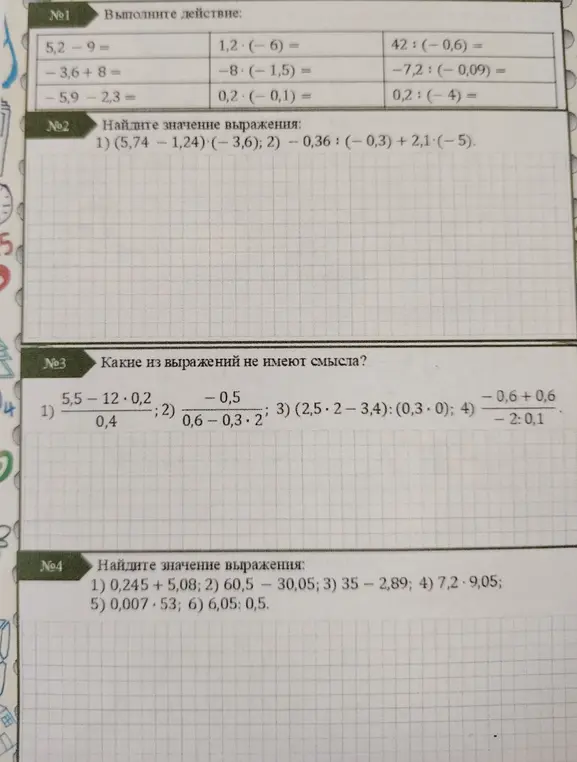 №1 Выполните действие:
5,2 − 9 = 1,2 · (− 6) = 42 : (− 0,6) =
− 3,6 + 8 = −8 · (− 1,5) = −7,2 : (− 0,09) =
− 5,9 − 2,3 = 0,2 · (− 0,1) = 0,2 : (− 4) =
№2 Найдите значение выражения:
1) (5,74 − 1,24)·(− 3,6); 2) − 0,36 : (− 0,3) + 2,1·(− 5).
№3 Какие из выражений не имеют смысла?
1) (5,5 − 12 · 0,2)/0,4; 2) (− 0,5)/(0,6 − 0,3 · 2); 3) (2,5 · 2 − 3,4): (0,3 · 0); 4) (− 0,6 + 0,6)/(− 2: 0,1).
№4 Найдите значение выражения:
1) 0,245 + 5,08; 2) 60,5 − 30,05; 3) 35 − 2,89; 4) 7,2 · 9,05;
5) 0,007 · 53; 6) 6,05: 0,5.